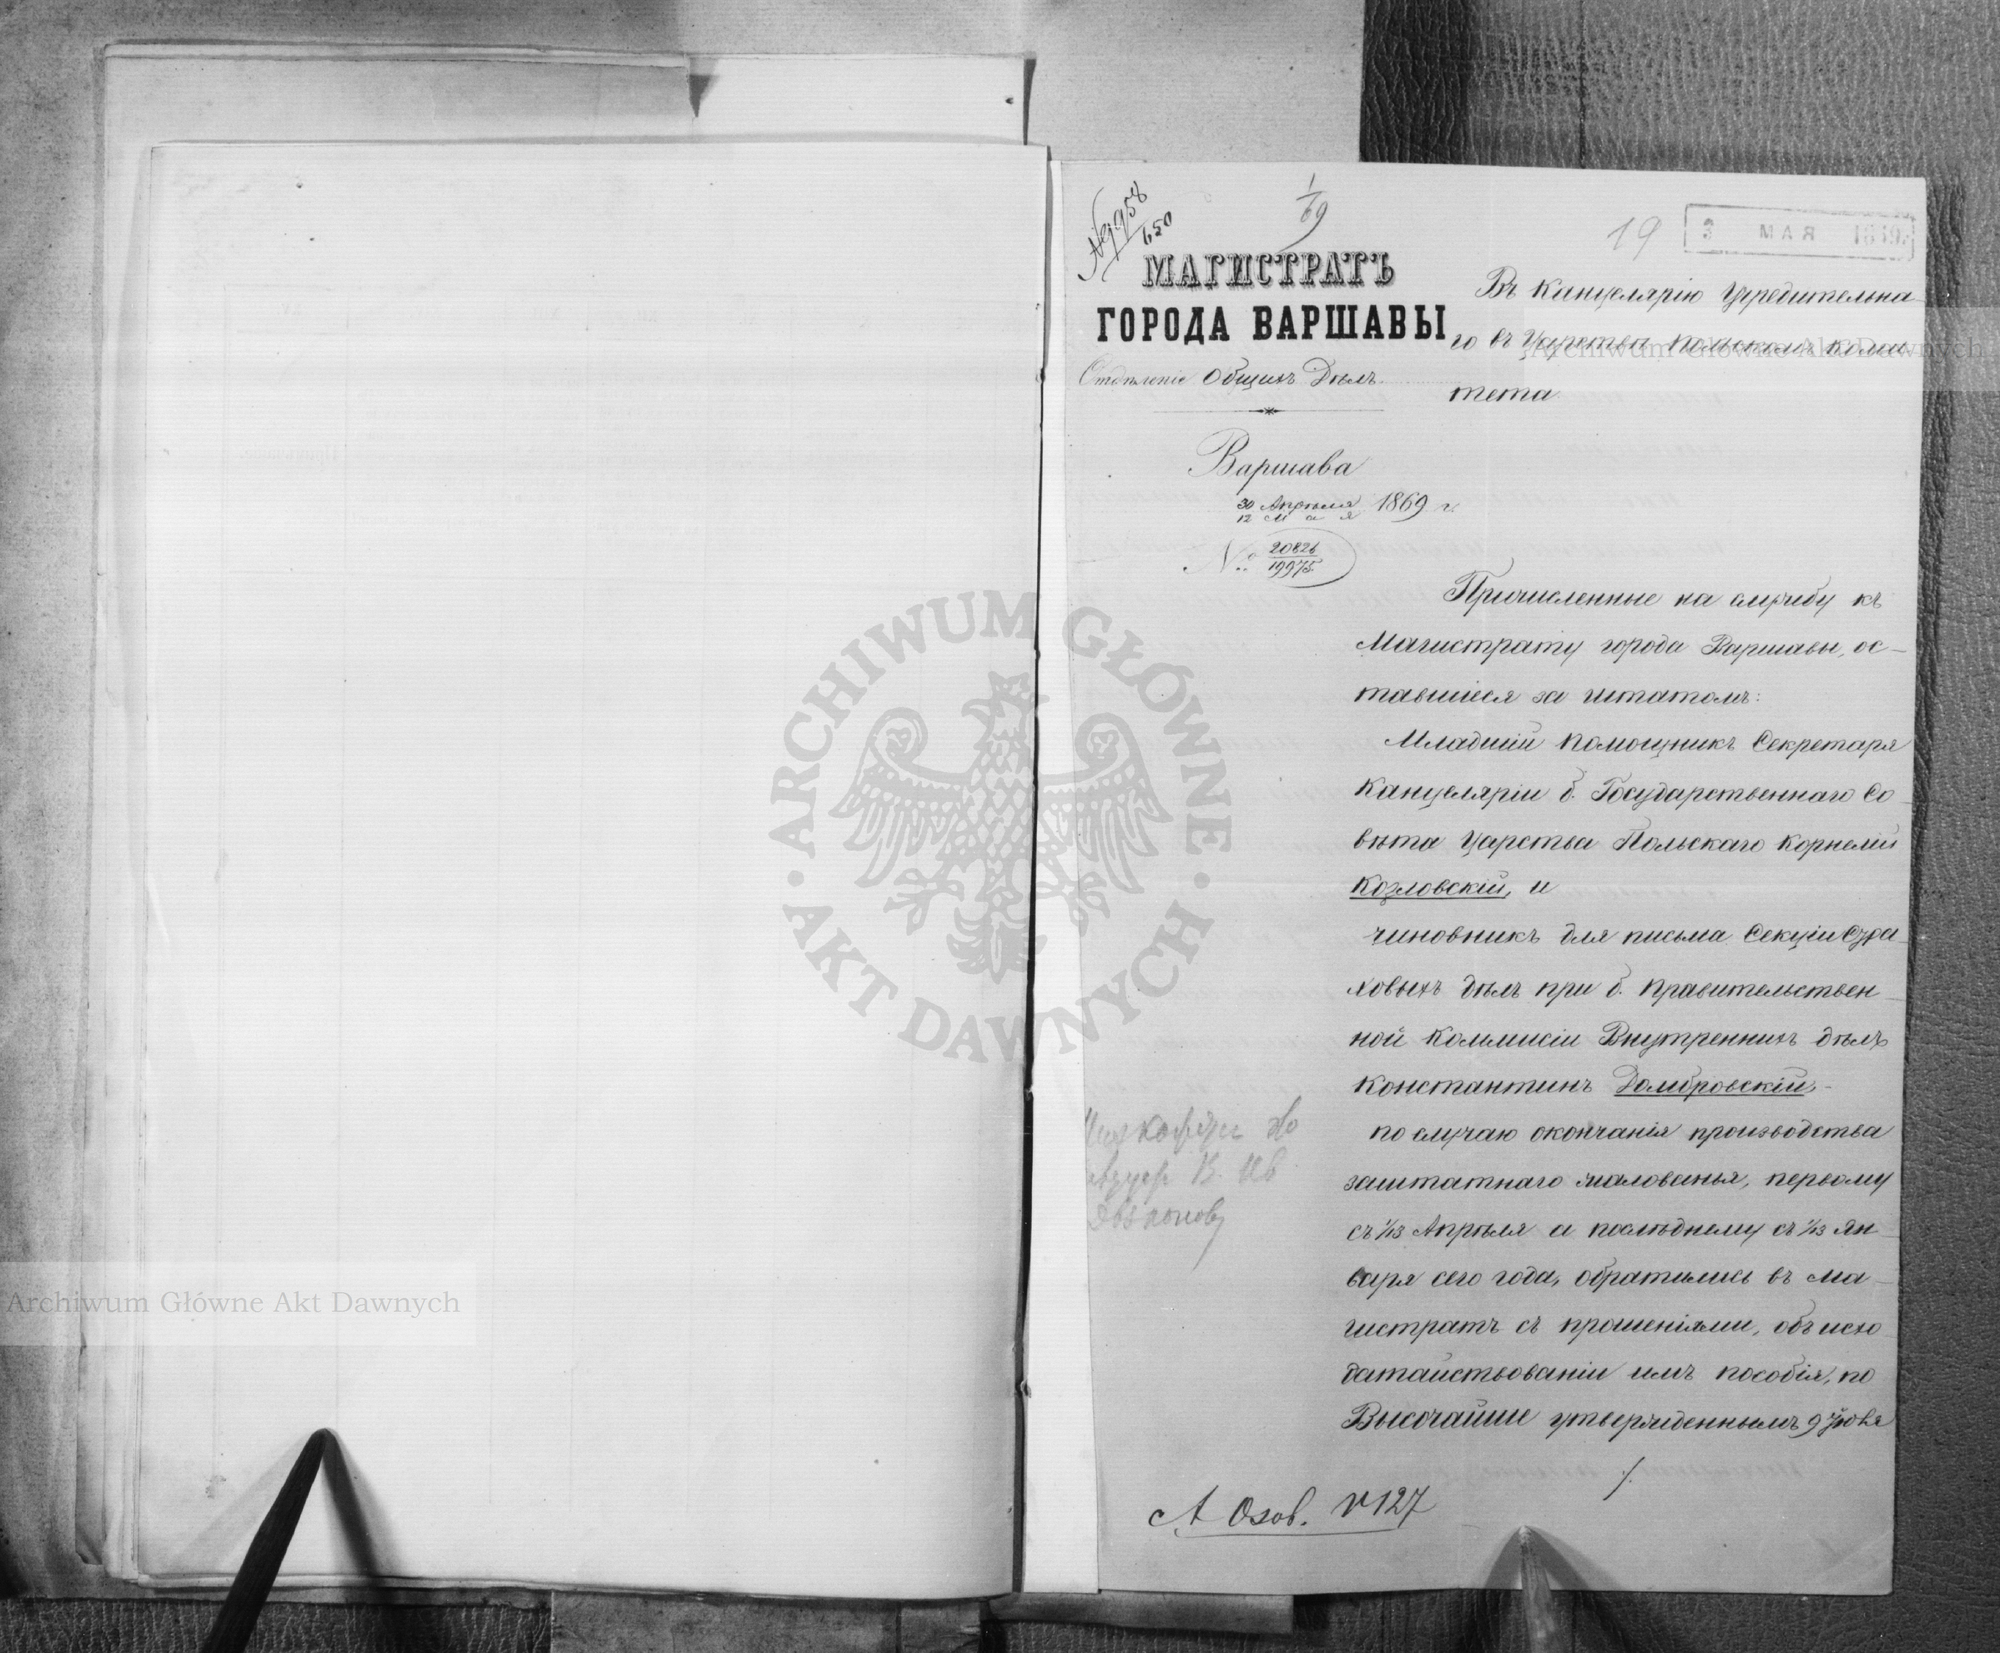 № 958
650
1/69
19
3 МАЯ 1869
МАГИСТРАТЪ
ГОРОДА ВАРШАВЫ
Отдѣленіе Общихъ Дѣлъ
Варшава
30 Апрѣля
12 Мая 1869 г.
№ 20826
19975
Въ Канцелярію Учредительна-
го въ Царствѣ Польскомъ Коми-
тета.
Причисленные на службу къ
Магистрату города Варшавы, ос-
тавшіеся за штатомъ:
Младшій Помощникъ Секретаря
Канцеляріи б. Государственнаго Со-
вѣта Царства Польскаго Корнелій
Козловскій, и
чиновникъ для письма Секціи Стра-
ховыхъ дѣлъ при б. Правительствен-
ной Коммисіи Внутреннихъ дѣлъ
Константинъ Домбровскій,
по случаю окончанія производства
заштатнаго жалованья, первому
съ 1/13 Апрѣля а послѣднему съ 1/13 Ян-
варя сего года, обратились въ Ма-
гистратъ съ прошеніями, объ исхо-
датайствованіи имъ пособія, по
Высочайше утвержденнымъ 9 Іюня
./.
№ 127
ARCHIWUM GŁÓWNE AKT DAWNYCH
Archiwum Główne Akt Dawnych
Archiwum Główne Akt Dawnych